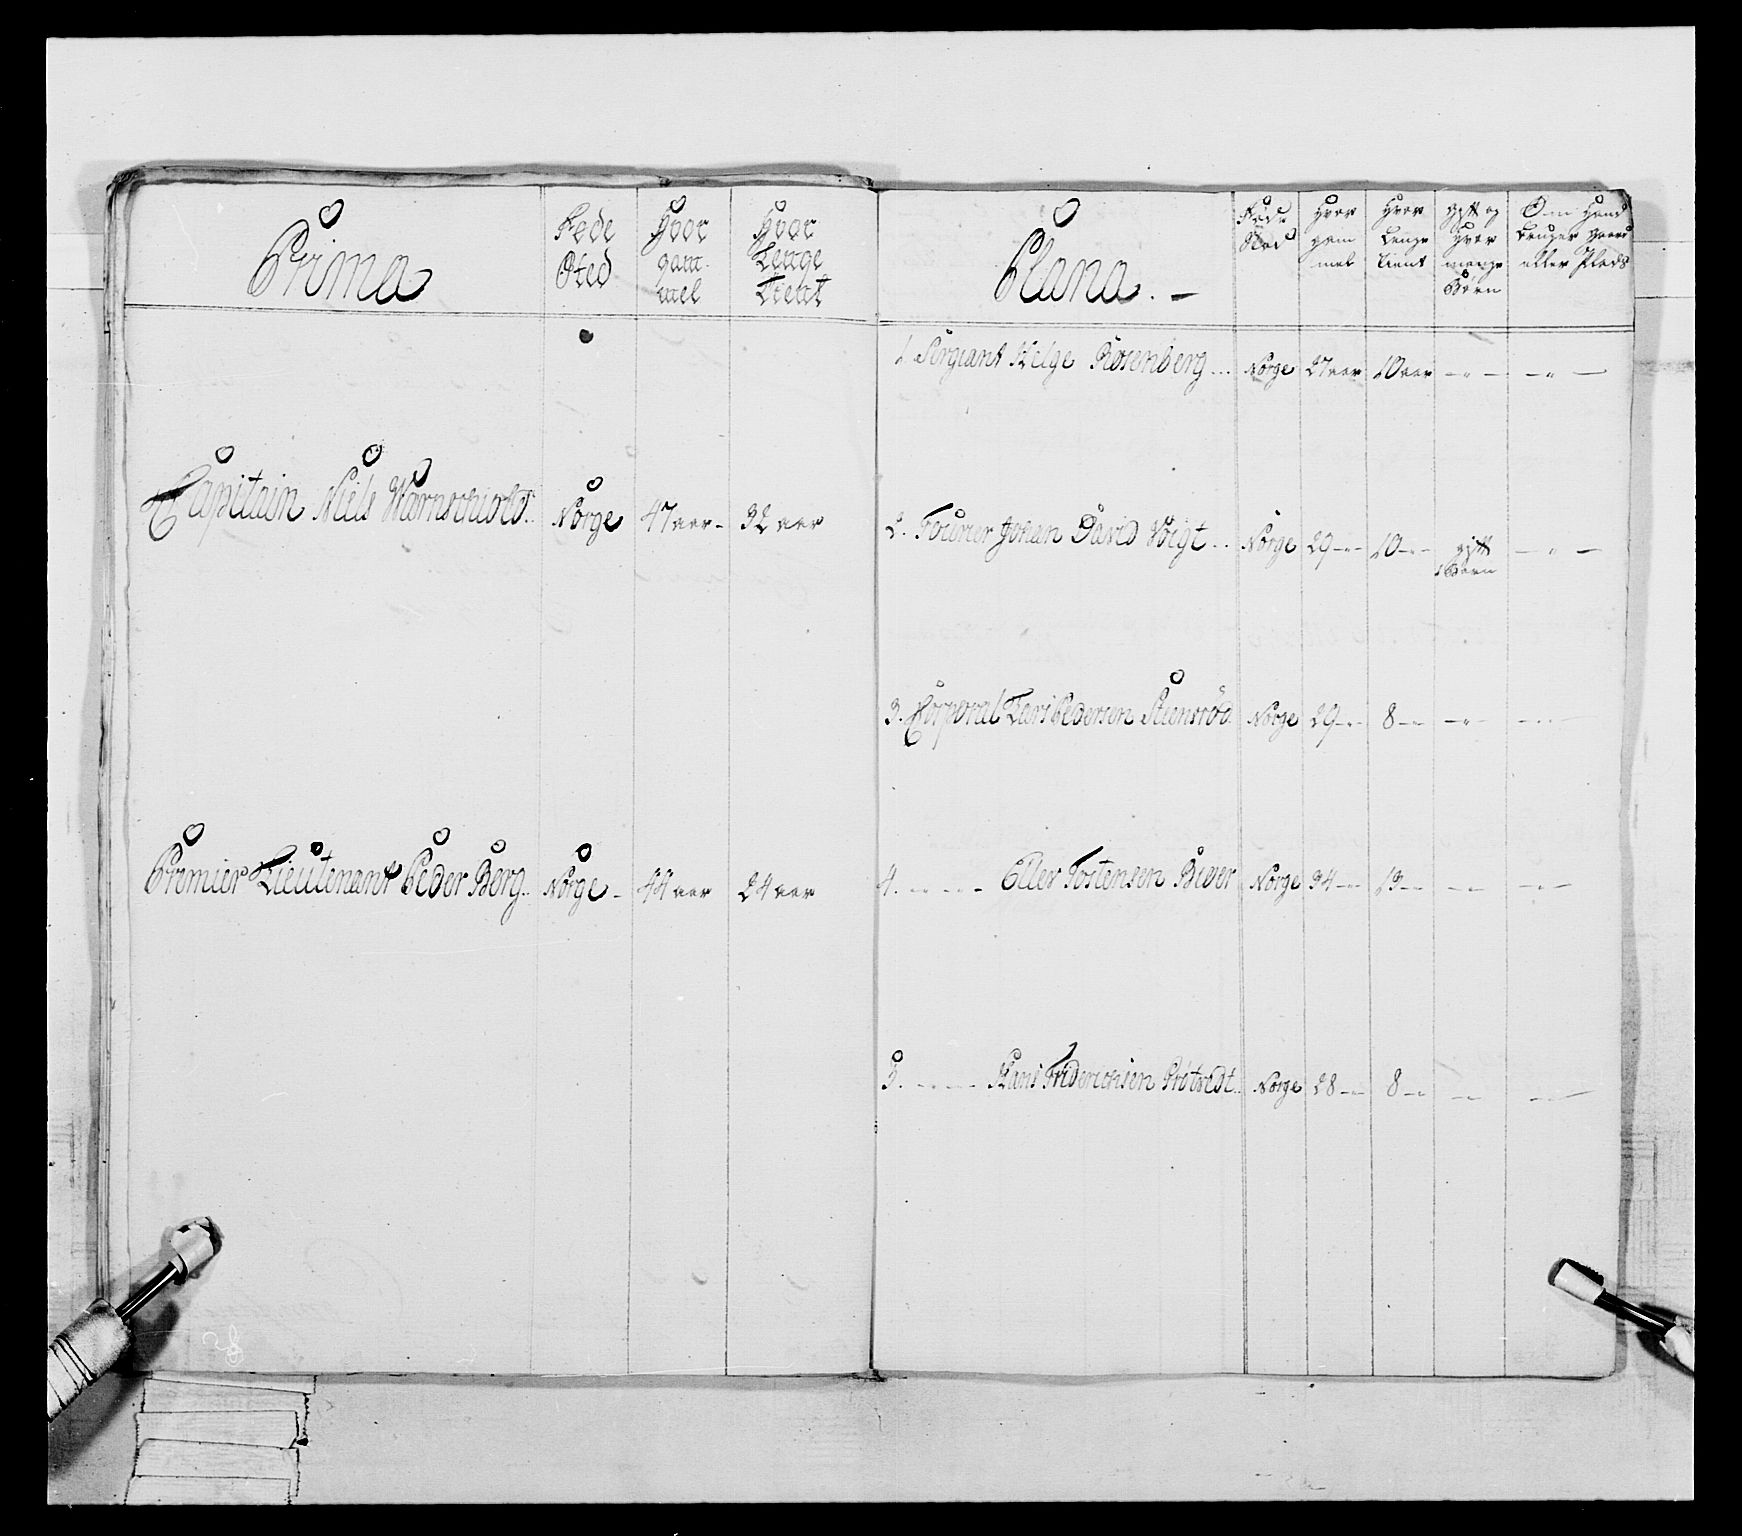 Prima
Føde Sted
Hvor gam mel
Hvor Lenge Tient
Capitain Niels Warnschiold.. Norge 47 aar - 32 aar
Premier Lieutenant Peder Berg.. Norge - 44 aar 24 aar
Plana. -
Føde Sted
Hvor gam mel
Hvor Lenge tient
gift og Hvor mange Børn
Om Hand bruger gaard eller Plads
1. Sergiant Helge Rosenberg... Norge 27 aar 10 aar - " - - " -
2. Fourier Johan David Voigt.. Norge 29 - " - 10 - " - gift - " -
1 Barn
3. Corporal Lars Pedersen Steensrød Norge 29 - " - 8 - " - - " - - " -
4. - " - " - Eller Tostensen Biver Norge 34 - " - 13 - " - - " - - " -
5. - " - " - Hans Friderichsen Protvedt.. Norge 28 - " - 8 - " - - " - - " -